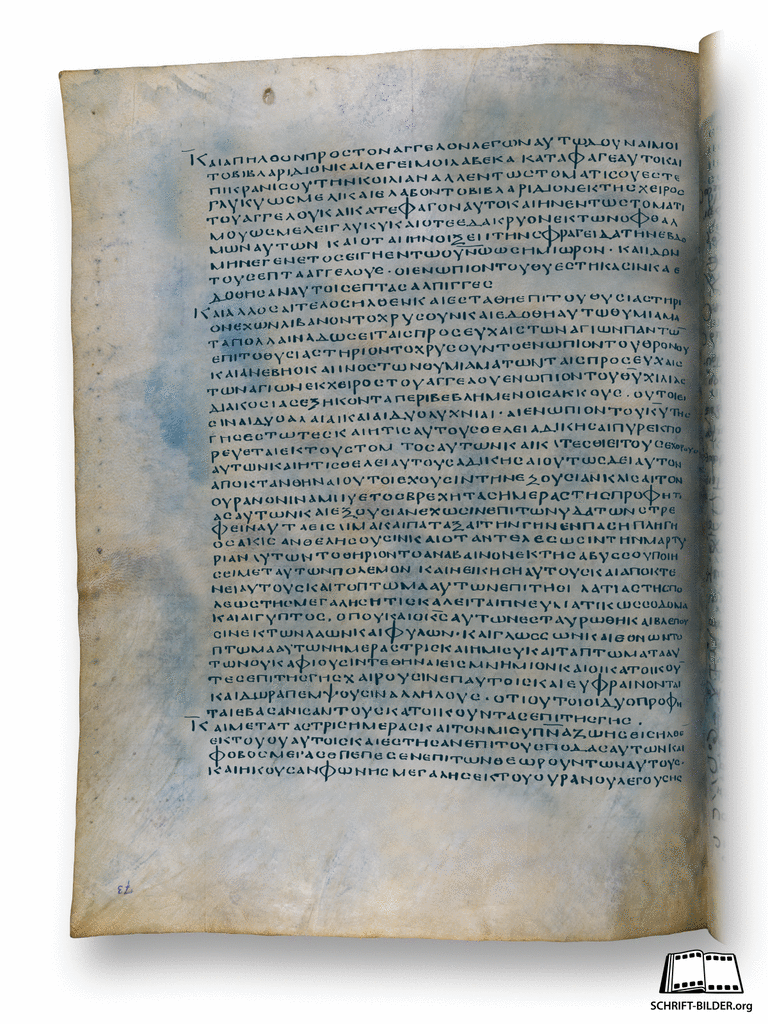 ΚΑΙΑΠΗΛΘΟΥΝΠΡΟΣΤΟΝΑΓΓΕΛΟΝΛΕΓΩΝΑΥΤΩΔΟΥΝΑΙΜΟΙ
ΤΟΒΙΒΛΑΡΙΔΙΟΝΚΑΙΛΕΓΕΙΜΟΙΛΑΒΕΚΑΙΚΑΤΑΦΑΓΕΑΥΤΟΚΑΙ
ΠΙΚΡΑΝΙΣΟΥΤΗΝΚΟΙΛΙΑΝΑΛΛΕΝΤΩΣΤΟΜΑΤΙΣΟΥΕΣΤΕ
ΓΛΥΚΥΩΣΜΕΛΙΚΑΙΕΛΑΒΟΝΤΟΒΙΒΛΑΡΙΔΙΟΝΕΚΤΗΣΧΕΙΡΟΣ
ΤΟΥΑΓΓΕΛΟΥΚΑΙΚΑΤΕΦΑΓΟΝΑΥΤΟΚΑΙΗΝΕΝΤΩΣΤΟΜΑΤΙ
ΜΟΥΩΣΜΕΛΕΙΓΛΥΚΥΚΑΙΟΤΕΕΔΑΚΡΥΟΝΕΚΤΩΝΟΦΘΑΛ
ΜΩΝΑΥΤΩΝ ΚΑΙΟΤΑΙΗΝΟΙΞΕΙΤΗΝΣΦΡΑΓΕΙΔΑΤΗΝΕΒΔΟ
ΜΗΝΕΓΕΝΕΤΟΣΕΙΓΗΕΝΤΩΟΥΝΩΩΣΗΜΙΩΡΟΝ· ΚΑΙΙΔΟΝ
ΤΟΥΣΕΠΤΑΑΓΓΕΛΟΥΣ· ΟΙΕΝΩΠΙΟΝΤΟΥΘΥΕΣΤΗΚΑΣΙΝΚΑΕ
ΔΟΘΗΣΑΝΑΥΤΟΙΣΕΠΤΑΣΑΛΠΙΓΓΕΣ
ΚΑΙΑΛΛΟΣΑΓΓΕΛΟΣΗΛΘΕΝΚΑΙΕΣΤΑΘΗΕΠΙΤΟΥΘΥΣΙΑΣΤΗΡΙ
ΟΝΕΧΩΝΛΙΒΑΝΟΝΤΟΧΡΥΣΟΥΝΚΑΙΕΔΟΘΗΑΥΤΩΘΥΜΙΑΜΑ
ΤΑΠΟΛΛΑΙΝΑΔΩΣΕΙΤΑΙΣΠΡΟΣΕΥΧΑΙΣΤΩΝΑΓΙΩΝΠΑΝΤΩ
ΕΠΙΤΟΘΥΣΙΑΣΤΗΡΙΟΝΤΟΧΡΥΣΟΥΝΤΟΕΝΩΠΙΟΝΤΟΥΘΡΟΝΟΥ
ΚΑΙΑΝΕΒΗΟΚΑΠΝΟΣΤΩΝΘΥΜΙΑΜΑΤΩΝΤΑΙΣΠΡΟΣΕΥΧΑΙΣ
ΤΩΝΑΓΙΩΝΕΚΧΕΙΡΟΣΤΟΥΑΓΓΕΛΟΥΕΝΩΠΙΟΝΤΟΥΘΥΧΙΛΙΑΣ
ΔΙΑΚΟΣΙΑΣΕΞΗΚΟΝΤΑΠΕΡΙΒΕΒΛΗΜΕΝΟΙΣΑΚΚΟΥΣ. ΟΥΤΟΙΕΙ
ΣΙΝΑΙΔΥΟΑΛΑΙΑΙΚΑΙΑΙΔΥΟΛΥΧΝΙΑΙ· ΑΙΕΝΩΠΙΟΝΤΟΥΚΥΤΗΣ
ΓΗΣΕΣΤΩΤΕΣΚΑΙΗΤΙΣΑΥΤΟΥΣΘΕΛΕΙΑΔΙΚΗΣΑΙΠΥΡΕΚΠΟ
ΡΕΥΕΤΑΙΕΚΤΟΥΣΤΟΜ ΤΟΣΑΥΤΩΝΚΑΙΚ ΤΕΣΘΙΕΙΤΟΥΣΕΧΘΡΟΥΣ
ΑΥΤΩΝΚΑΙΗΤΙΣΘΕΛΕΙΑΥΤΟΥΣΑΔΙΚΗΣΑΙΟΥΤΩΣΔΕΙΑΥΤΟΝ
ΑΠΟΚΤΑΝΘΗΝΑΙΟΥΤΟΙΕΧΟΥΣΙΝΤΗΝΕΞΟΥΣΙΑΝΚΛΙΣΑΙΤΟΝ
ΟΥΡΑΝΟΝΙΝΑΜΗΥΕΤΟΣΒΡΕΧΗΤΑΣΗΜΕΡΑΣΤΗΣΠΡΟΦΗΤ
ΑΣΑΥΤΩΝΚΑΙΕΞΟΥΣΙΑΝΕΧΩΣΙΝΕΠΙΤΩΝΥΔΑΤΩΝΣΤΡΕ
ΦΕΙΝΑΥΤΑΕΙΣΑΙΜΑΚΑΙΠΑΤΑΞΑΙΤΗΝΓΗΝΕΝΠΑΣΗΠΛΗΓΗ
ΟΣΑΚΙΣΑΝΘΕΛΗΣΟΥΣΙΝΚΑΙΟΤΑΝΤΕΛΕΣΩΣΙΝΤΗΝΜΑΡΤΥ
ΡΙΑΝΑΥΤΩΝΤΟΘΗΡΙΟΝΤΟΑΝΑΒΑΙΝΟΝΕΚΤΗΣΑΒΥΣΣΟΥΠΟΙΗ
ΣΕΙΜΕΤΑΥΤΩΝΠΟΛΕΜΟΝ ΚΑΙΝΕΙΚΗΣΗΑΥΤΟΥΣΚΑΙΑΠΟΚΤΕ
ΝΕΙΑΥΤΟΥΣΚΑΙΤΟΠΤΩΜΑΑΥΤΩΝΕΠΙΤΗΣΠΛΑΤΙΑΣΤΗΣΠΟ
ΛΕΩΣΤΗΣΜΕΓΑΛΗΣΗΤΙΣΚΑΛΕΙΤΑΙΠΝΕΥΜΑΤΙΚΩΣΣΟΔΟΜΑ
ΚΑΙΑΙΓΥΠΤΟΣ, ΟΠΟΥΚΑΙΟΚΣΑΥΤΩΝΕΣΤΑΥΡΩΘΗΚΑΙΒΛΕΠΟΥ
ΣΙΝΕΚΤΩΝΛΑΩΝΚΑΙΦΥΛΩΝ· ΚΑΙΓΛΩΣΣΩΝΚΑΙΕΘΝΩΝΤΟ
ΠΤΩΜΑΑΥΤΩΝΗΜΕΡΑΣΤΡΙΣΚΑΙΗΜΙΣΥΚΑΙΤΑΠΤΩΜΑΤΑΑΥ
ΤΩΝΟΥΚΑΦΙΟΥΣΙΝΤΕΘΗΝΑΙΕΙΣΜΝΗΜΙΟΝΚΑΙΟΙΚΑΤΟΙΚΟΥ
ΤΕΣΕΠΙΤΗΣΓΗΣΧΑΙΡΟΥΣΙΝΕΠΑΥΤΟΙΣΚΑΙΕΥΦΡΑΙΝΟΝΤΑΙ
ΚΑΙΔΩΡΑΠΕΜΨΟΥΣΙΝΑΛΛΗΛΟΥΣ. ΟΤΙΟΥΤΟΙΟΙΔΥΟΠΡΟΦΗ
ΤΑΙΕΒΑΣΑΝΙΣΑΝΤΟΥΣΚΑΤΟΙΚΟΥΝΤΑΣΕΠΙΤΗΣΓΗΣ.
ΚΑΙΜΕΤΑΤΑΣΤΡΙΣΗΜΕΡΑΣΚΑΙΤΟΗΜΙΣΥΠΝΑΖΩΗΣΕΙΣΗΛΘΕ
ΕΚΤΟΥΘΥΑΥΤΟΙΣΚΑΙΕΣΤΗΣΑΝΕΠΙΤΟΥΣΠΟΔΑΣΑΥΤΩΝΚΑΙ
ΦΟΒΟΣΜΕΓΑΣΘΠΕΠΕΣΕΝΕΠΙΤΩΝΘΕΩΡΟΥΝΤΩΝΑΥΤΟΥΣ·
ΚΑΙΗΚΟΥΣΑΝΦΩΝΗΣΜΕΓΑΛΗΣΕΙΚΤΟΥΟΥΡΑΝΟΥΛΕΓΟΥΣΗΣ
73
SCHRIFT-BILDER.org